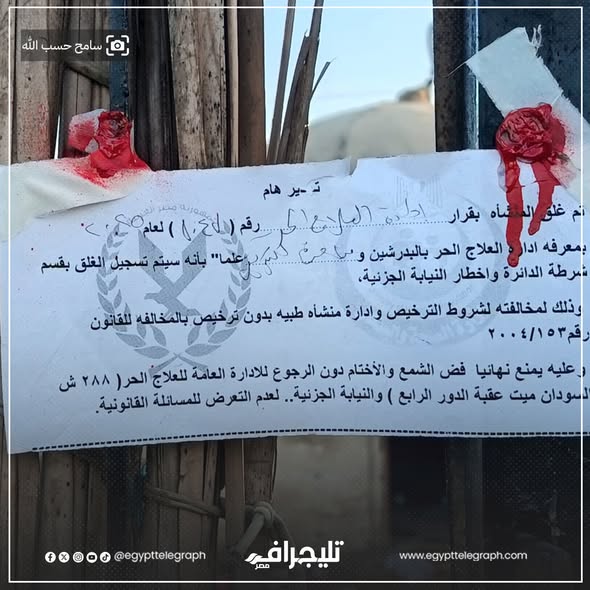 سامح حسب الله
هام
تم غلق المنشأه بقرار ادارة العلاج الحر رقم ( ) لعام
بمعرفه ادارة العلاج الحر بالبدرشين و علما" بأنه سيتم تسجيل الغلق بقسم
شرطة الدائرة واخطار النيابة الجزئية،
وذلك لمخالفته لشروط الترخيص وادارة منشأه طبيه بدون ترخيص بالمخالفه للقانون
رقم ٢٠٠٤/١٥٣
وعليه يمنع نهائيا فض الشمع والأختام دون الرجوع للادارة العامة للعلاج الحر( ٢٨٨ ش
السودان ميت عقبة الدور الرابع ) والنيابة الجزئية.. لعدم التعرض للمسائلة القانونية.
@egypttelegraph
تليجراف مصر
www.egypttelegraph.com